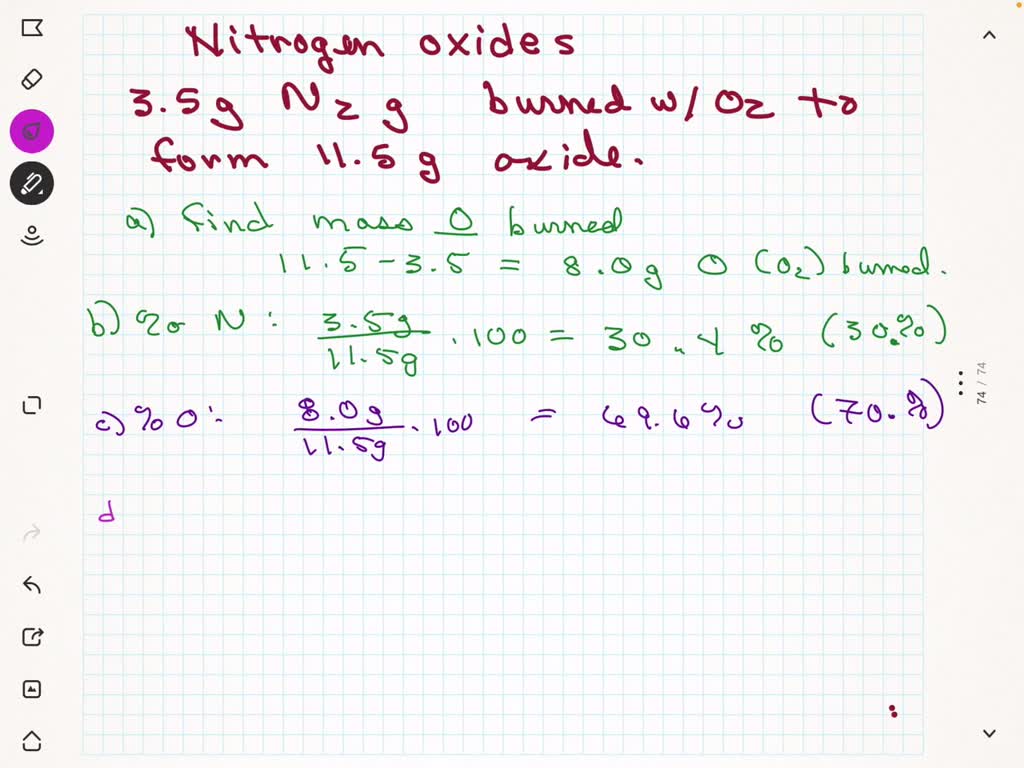 Nitrogen oxides
3.5g N2 g burned w/ O2 to
form 11.5 g oxide.
a) find mass O burned
11.5 - 3.5 = 8.0 g O (O2) burned.
b) % N : 3.5g / 11.5g . 100 = 30.4 % (30.%)
c) % O : 8.0g / 11.5g . 100 = 69.6% (70.%)
d
74 / 74